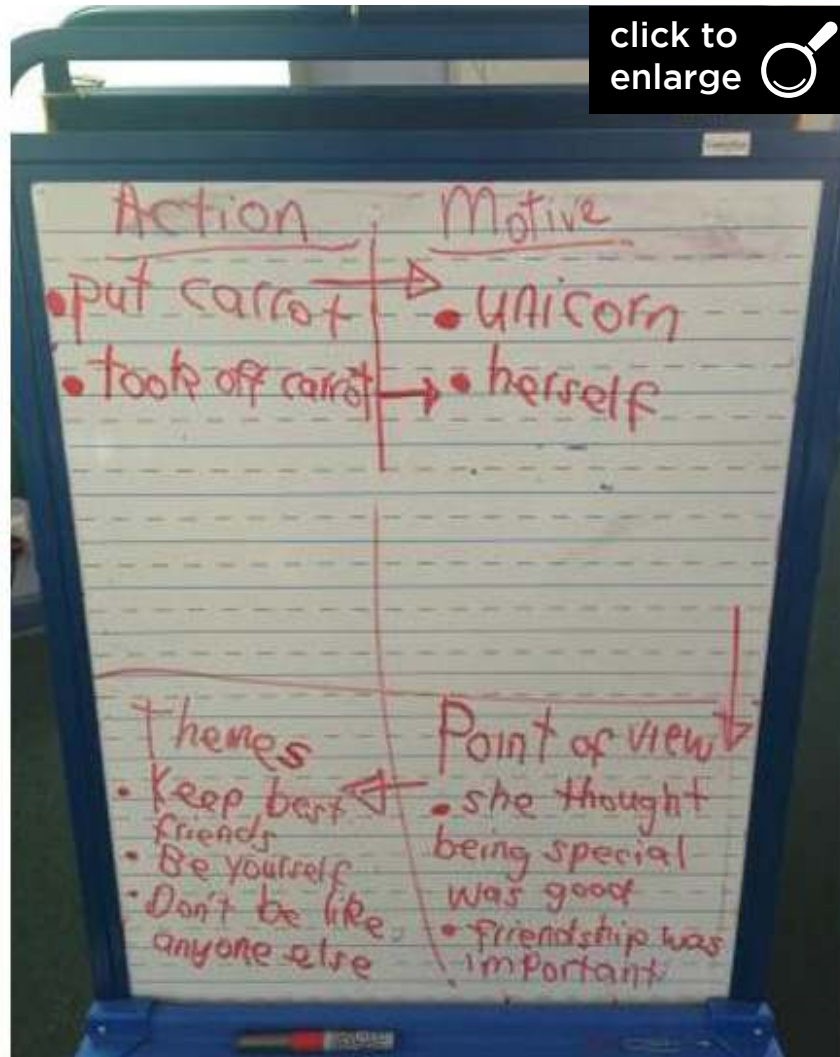 click to
enlarge
Action
Motive
• put carrot
• unicorn
• took off carrot
• herself
Themes
• Keep best
friends
• Be yourself
• Don't be like
anyone else
Point of view
• she thought
being special
was good
• friendship was
important